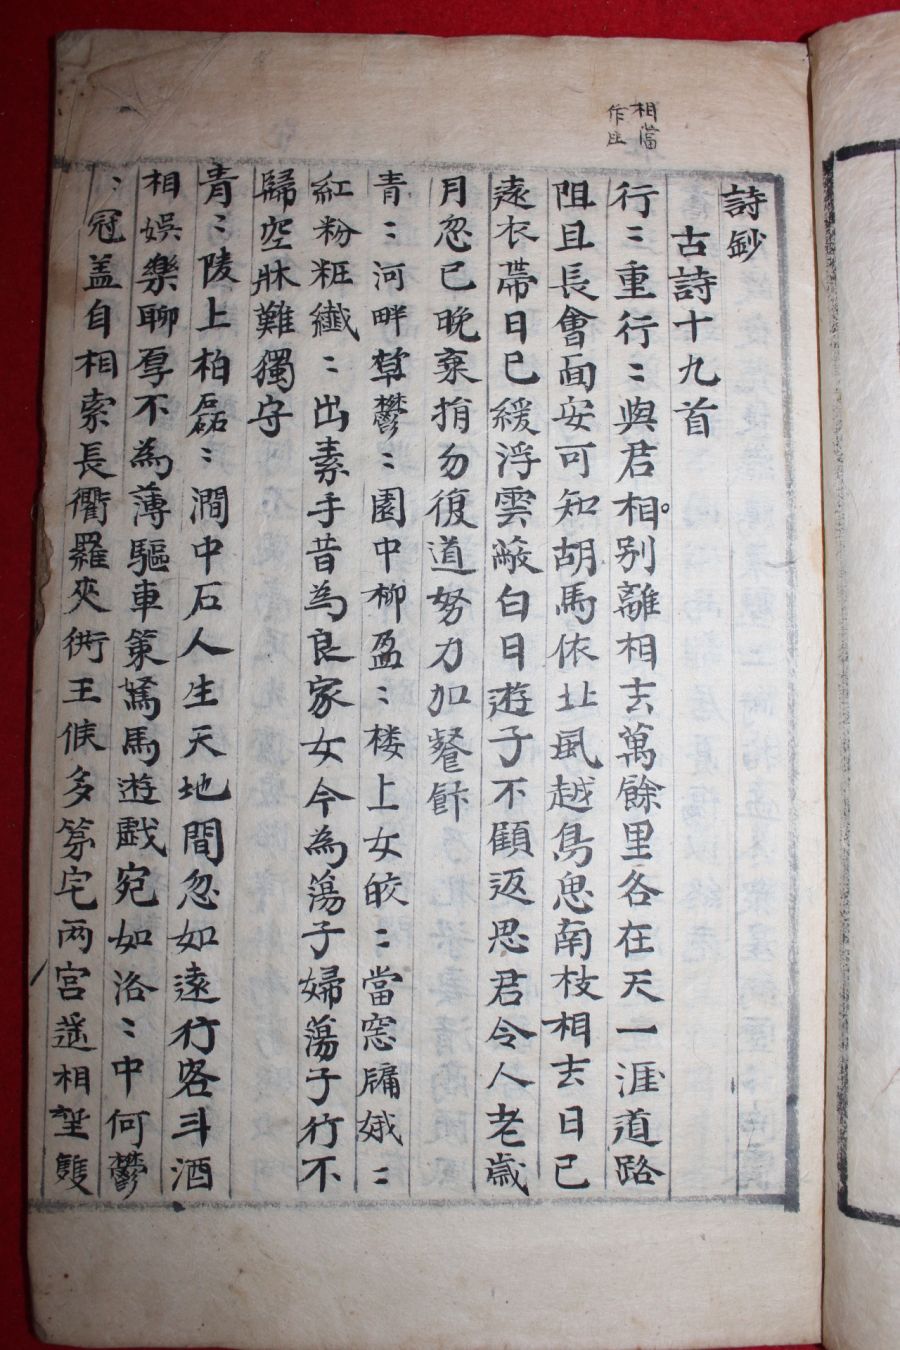 相當
作生
詩鈔
古詩十九首
行〻重行〻與君相別離相去萬餘里各在天一涯道路
阻且長會面安可知胡馬依北風越鳥思南枝相去日已
遠衣帶日已緩浮雲蔽白日遊子不顧返思君令人老歲
月忽已晚棄捐勿復道努力加餐飰
青〻河畔草鬱〻園中柳盈〻楼上女皎〻當窓牖娥〻
紅粉粧纖〻出素手昔為良家女今為蕩子婦蕩子行不
歸空牀難獨守
青〻陵上柏磊〻澗中石人生天地間忽如遠行客斗酒
相娯樂聊厚不為薄驅車策駑馬遊戱宛如洛〻中何鬱
〻冠盖自相索長衢羅夾術王侯多第宅兩宮遥相望雙